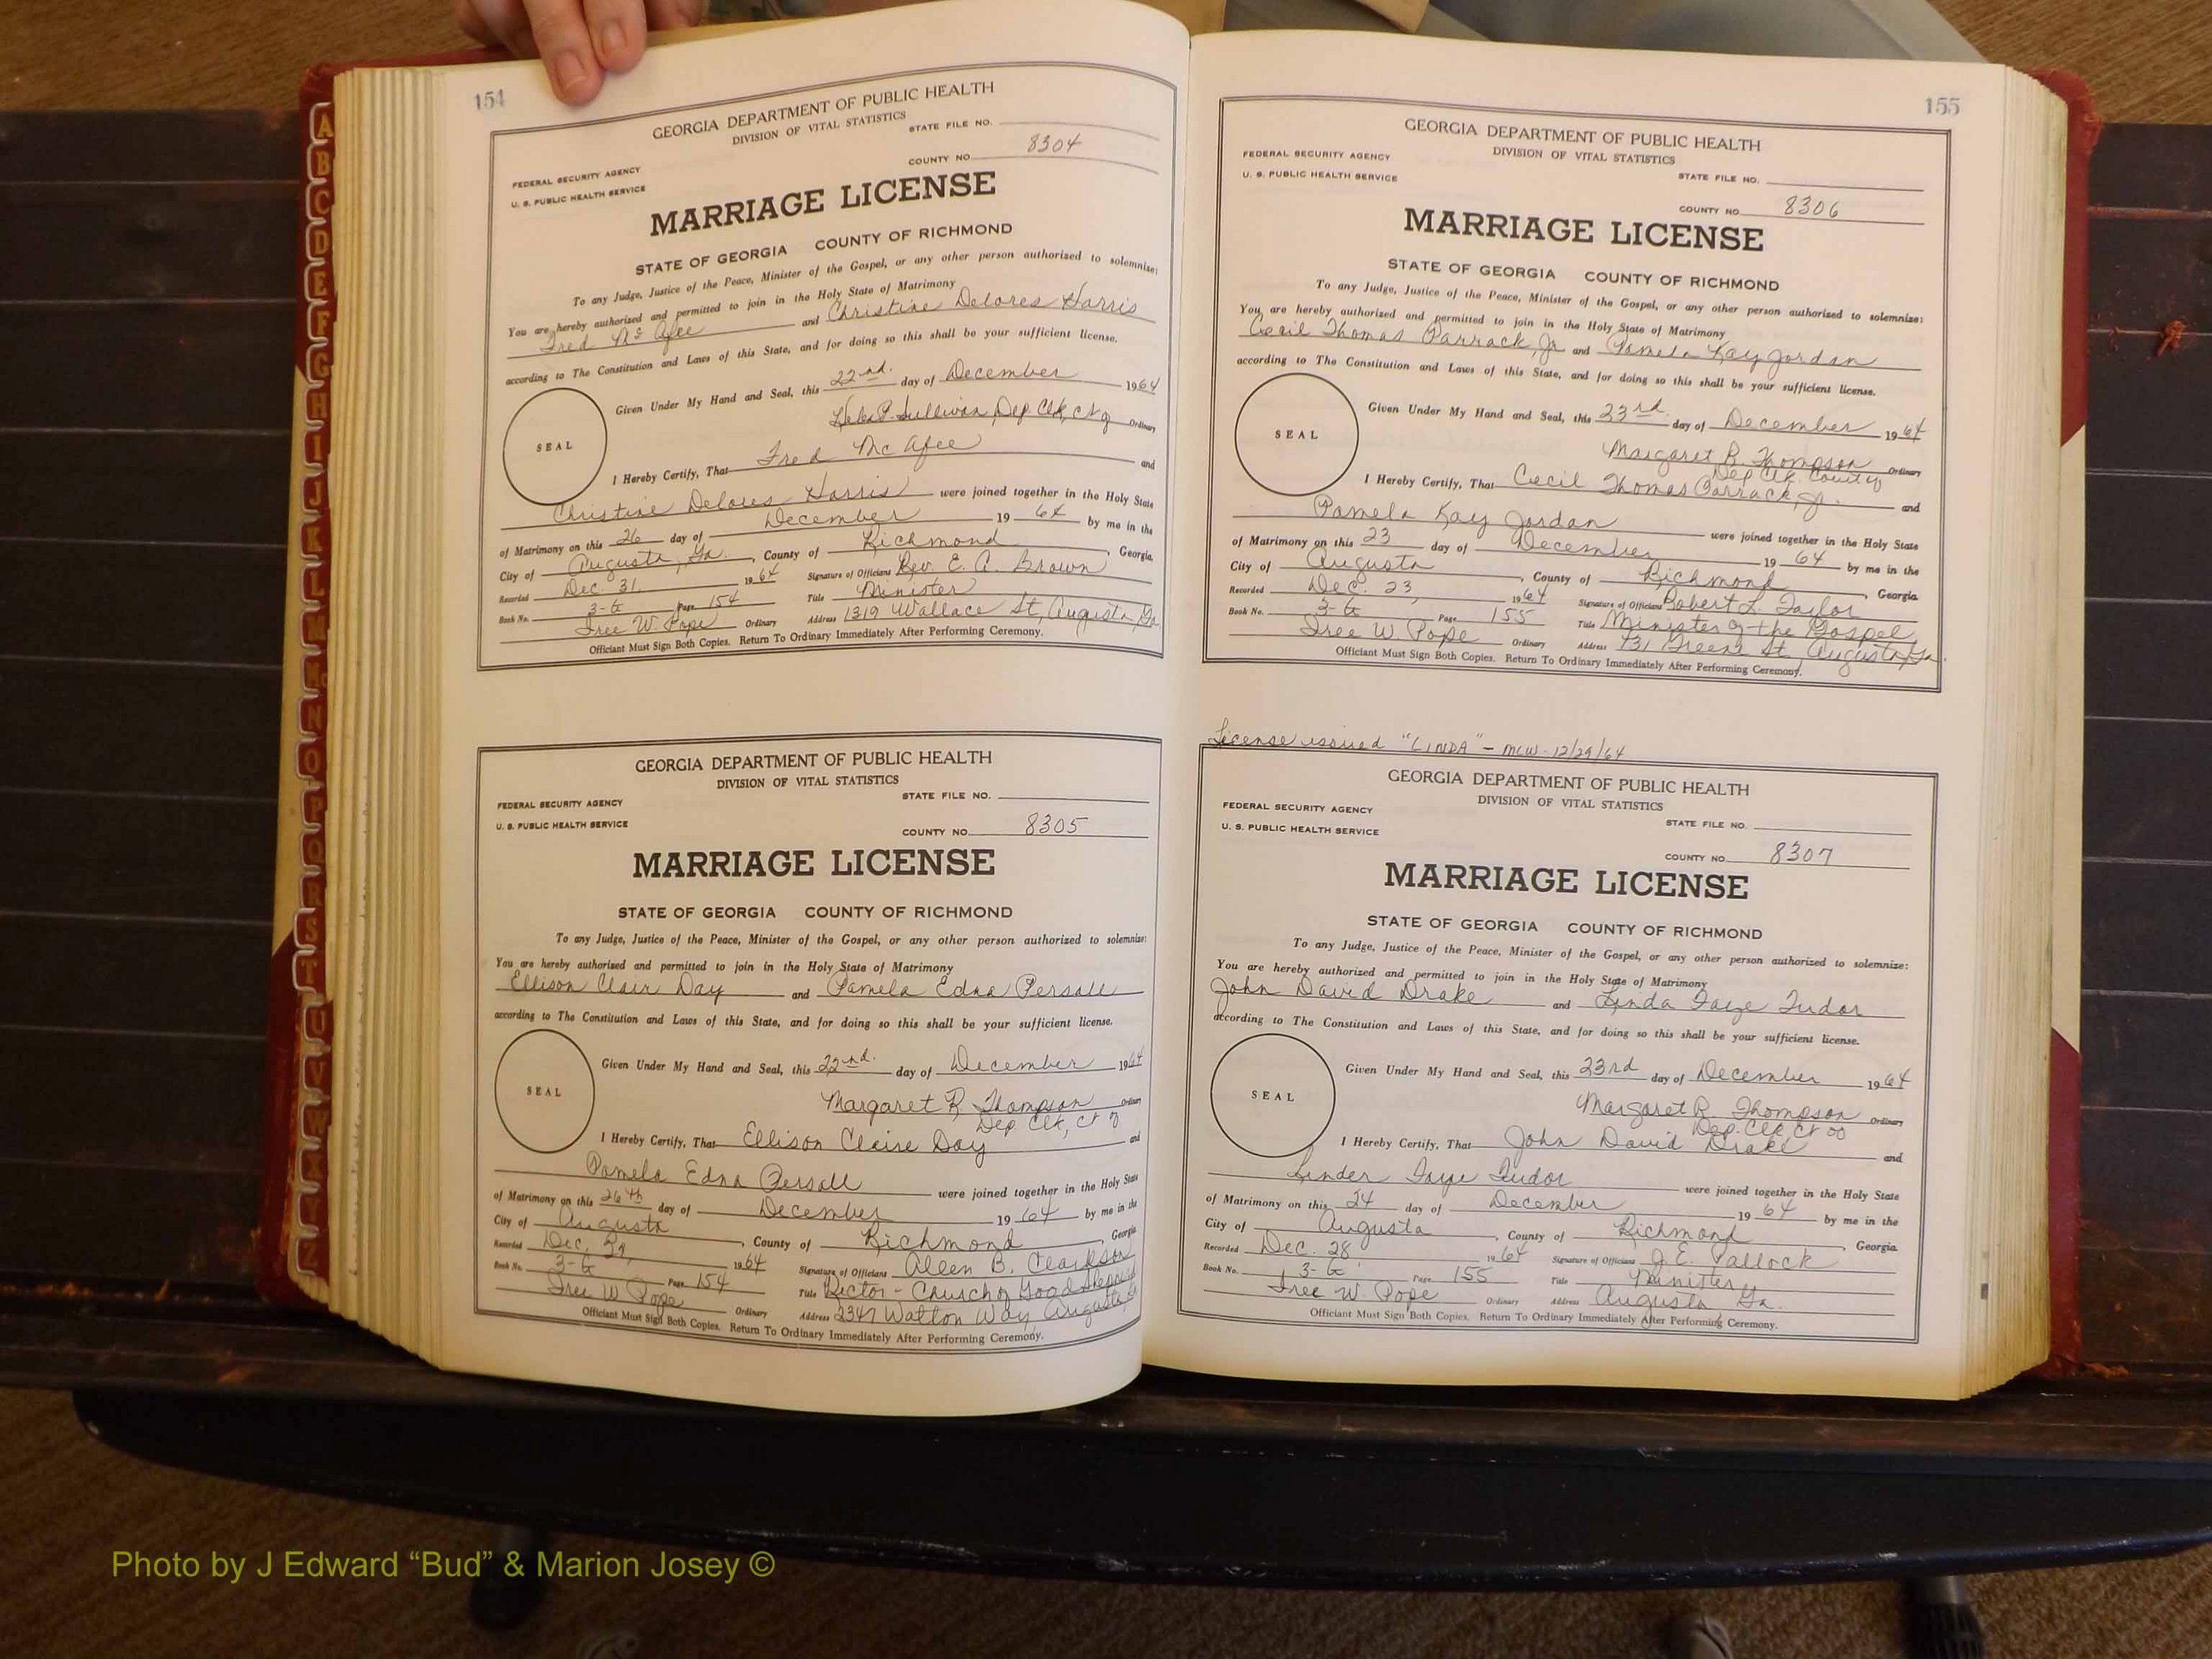 154
GEORGIA DEPARTMENT OF PUBLIC HEALTH
DIVISION OF VITAL STATISTICS
STATE FILE NO.
FEDERAL SECURITY AGENCY
U. S. PUBLIC HEALTH SERVICE
COUNTY NO. 8304
MARRIAGE LICENSE
STATE OF GEORGIA COUNTY OF RICHMOND
To any Judge, Justice of the Peace, Minister of the Gospel, or any other person authorized to solemnize:
You are hereby authorized and permitted to join in the Holy State of Matrimony
Fred Mc Afee and Christine Delores Harris
according to The Constitution and Laws of this State, and for doing so this shall be your sufficient license.
SEAL
Given Under My Hand and Seal, this 22nd. day of December 1964
Helen P. Sullivan, Dep. Clk, Ct of Ordinary
I Hereby Certify, That Fred Mc Afee and
Christine Delores Harris were joined together in the Holy State
of Matrimony on this 26 day of December 19 64 by me in the
City of Augusta, Ga. , County of Richmond , Georgia.
Recorded Dec. 31, 1964 Signature of Officiant Rev. E. A. Brown
Book No. 3-G Page 154 Title Minister
Iree W. Pope Ordinary Address 1319 Wallace St, Augusta, Ga.
Officiant Must Sign Both Copies. Return To Ordinary Immediately After Performing Ceremony.
GEORGIA DEPARTMENT OF PUBLIC HEALTH
DIVISION OF VITAL STATISTICS
STATE FILE NO.
FEDERAL SECURITY AGENCY
U. S. PUBLIC HEALTH SERVICE
COUNTY NO. 8305
MARRIAGE LICENSE
STATE OF GEORGIA COUNTY OF RICHMOND
To any Judge, Justice of the Peace, Minister of the Gospel, or any other person authorized to solemnize:
You are hereby authorized and permitted to join in the Holy State of Matrimony
Ellison Clair Day and Pamela Edna Persall
according to The Constitution and Laws of this State, and for doing so this shall be your sufficient license.
SEAL
Given Under My Hand and Seal, this 22nd. day of December 1964
Margaret R. Thompson Ordinary
Dep. Clk, Ct of
I Hereby Certify, That Ellison Claire Day and
Pamela Edna Persall were joined together in the Holy State
of Matrimony on this 26th day of December 19 64 by me in the
City of Augusta , County of Richmond , Georgia
Recorded Dec. 1964 Signature of Officiant Allen B. Clarkson
Book No. 3-G Page 154 Title Rector - Church of Good Shepherd
Iree W. Pope Ordinary Address 2347 Walton Way, Augusta, Ga
Officiant Must Sign Both Copies. Return To Ordinary Immediately After Performing Ceremony.
155
GEORGIA DEPARTMENT OF PUBLIC HEALTH
DIVISION OF VITAL STATISTICS
FEDERAL SECURITY AGENCY
U. S. PUBLIC HEALTH SERVICE
STATE FILE NO.
COUNTY NO. 8306
MARRIAGE LICENSE
STATE OF GEORGIA COUNTY OF RICHMOND
To any Judge, Justice of the Peace, Minister of the Gospel, or any other person authorized to solemnize:
You are hereby authorized and permitted to join in the Holy State of Matrimony
Cecil Thomas Parrack, Jr. and Pamela Kay Jordan
according to The Constitution and Laws of this State, and for doing so this shall be your sufficient license.
SEAL
Given Under My Hand and Seal, this 23rd. day of December 1964
Margaret R. Thompson Ordinary
Dep Clk. Court of
I Hereby Certify, That Cecil Thomas Parrack, Jr. and
Pamela Kay Jordan were joined together in the Holy State
of Matrimony on this 23 day of December 19 64 by me in the
City of Augusta , County of Richmond , Georgia
Recorded Dec. 23, 1964 Signature of Officiant Robert L. Taylor
Book No. 3-G Page 155 Title Minister of the Gospel
Iree W. Pope Ordinary Address Greene St. Augusta, Ga.
Officiant Must Sign Both Copies. Return To Ordinary Immediately After Performing Ceremony.
License issued "LINDA" - MCW - 12/29/64
GEORGIA DEPARTMENT OF PUBLIC HEALTH
DIVISION OF VITAL STATISTICS
FEDERAL SECURITY AGENCY
U. S. PUBLIC HEALTH SERVICE
STATE FILE NO.
COUNTY NO. 8307
MARRIAGE LICENSE
STATE OF GEORGIA COUNTY OF RICHMOND
To any Judge, Justice of the Peace, Minister of the Gospel, or any other person authorized to solemnize:
You are hereby authorized and permitted to join in the Holy State of Matrimony
John David Drake and Linda Faye Tudor
according to The Constitution and Laws of this State, and for doing so this shall be your sufficient license.
SEAL
Given Under My Hand and Seal, this 23rd day of December 1964
Margaret R. Thompson Ordinary
Dep. Clk, Ct oo
I Hereby Certify, That John David Drake and
Linder Faye Tudor were joined together in the Holy State
of Matrimony on this 24 day of December 19 64 by me in the
City of Augusta , County of Richmond , Georgia
Recorded Dec. 28 1964 Signature of Officiant J. E. Pallock
Book No. 3-G Page 155 Title Minister
Iree W. Pope Ordinary Address Augusta Ga.
Officiant Must Sign Both Copies. Return To Ordinary Immediately After Performing Ceremony.
A
B
C
D
E
F
G
H
I
J
K
L
M
Mc
N
O
P
Q
R
S
T
U
V
W
X
Y
Z
Photo by J Edward “Bud” & Marion Josey ©